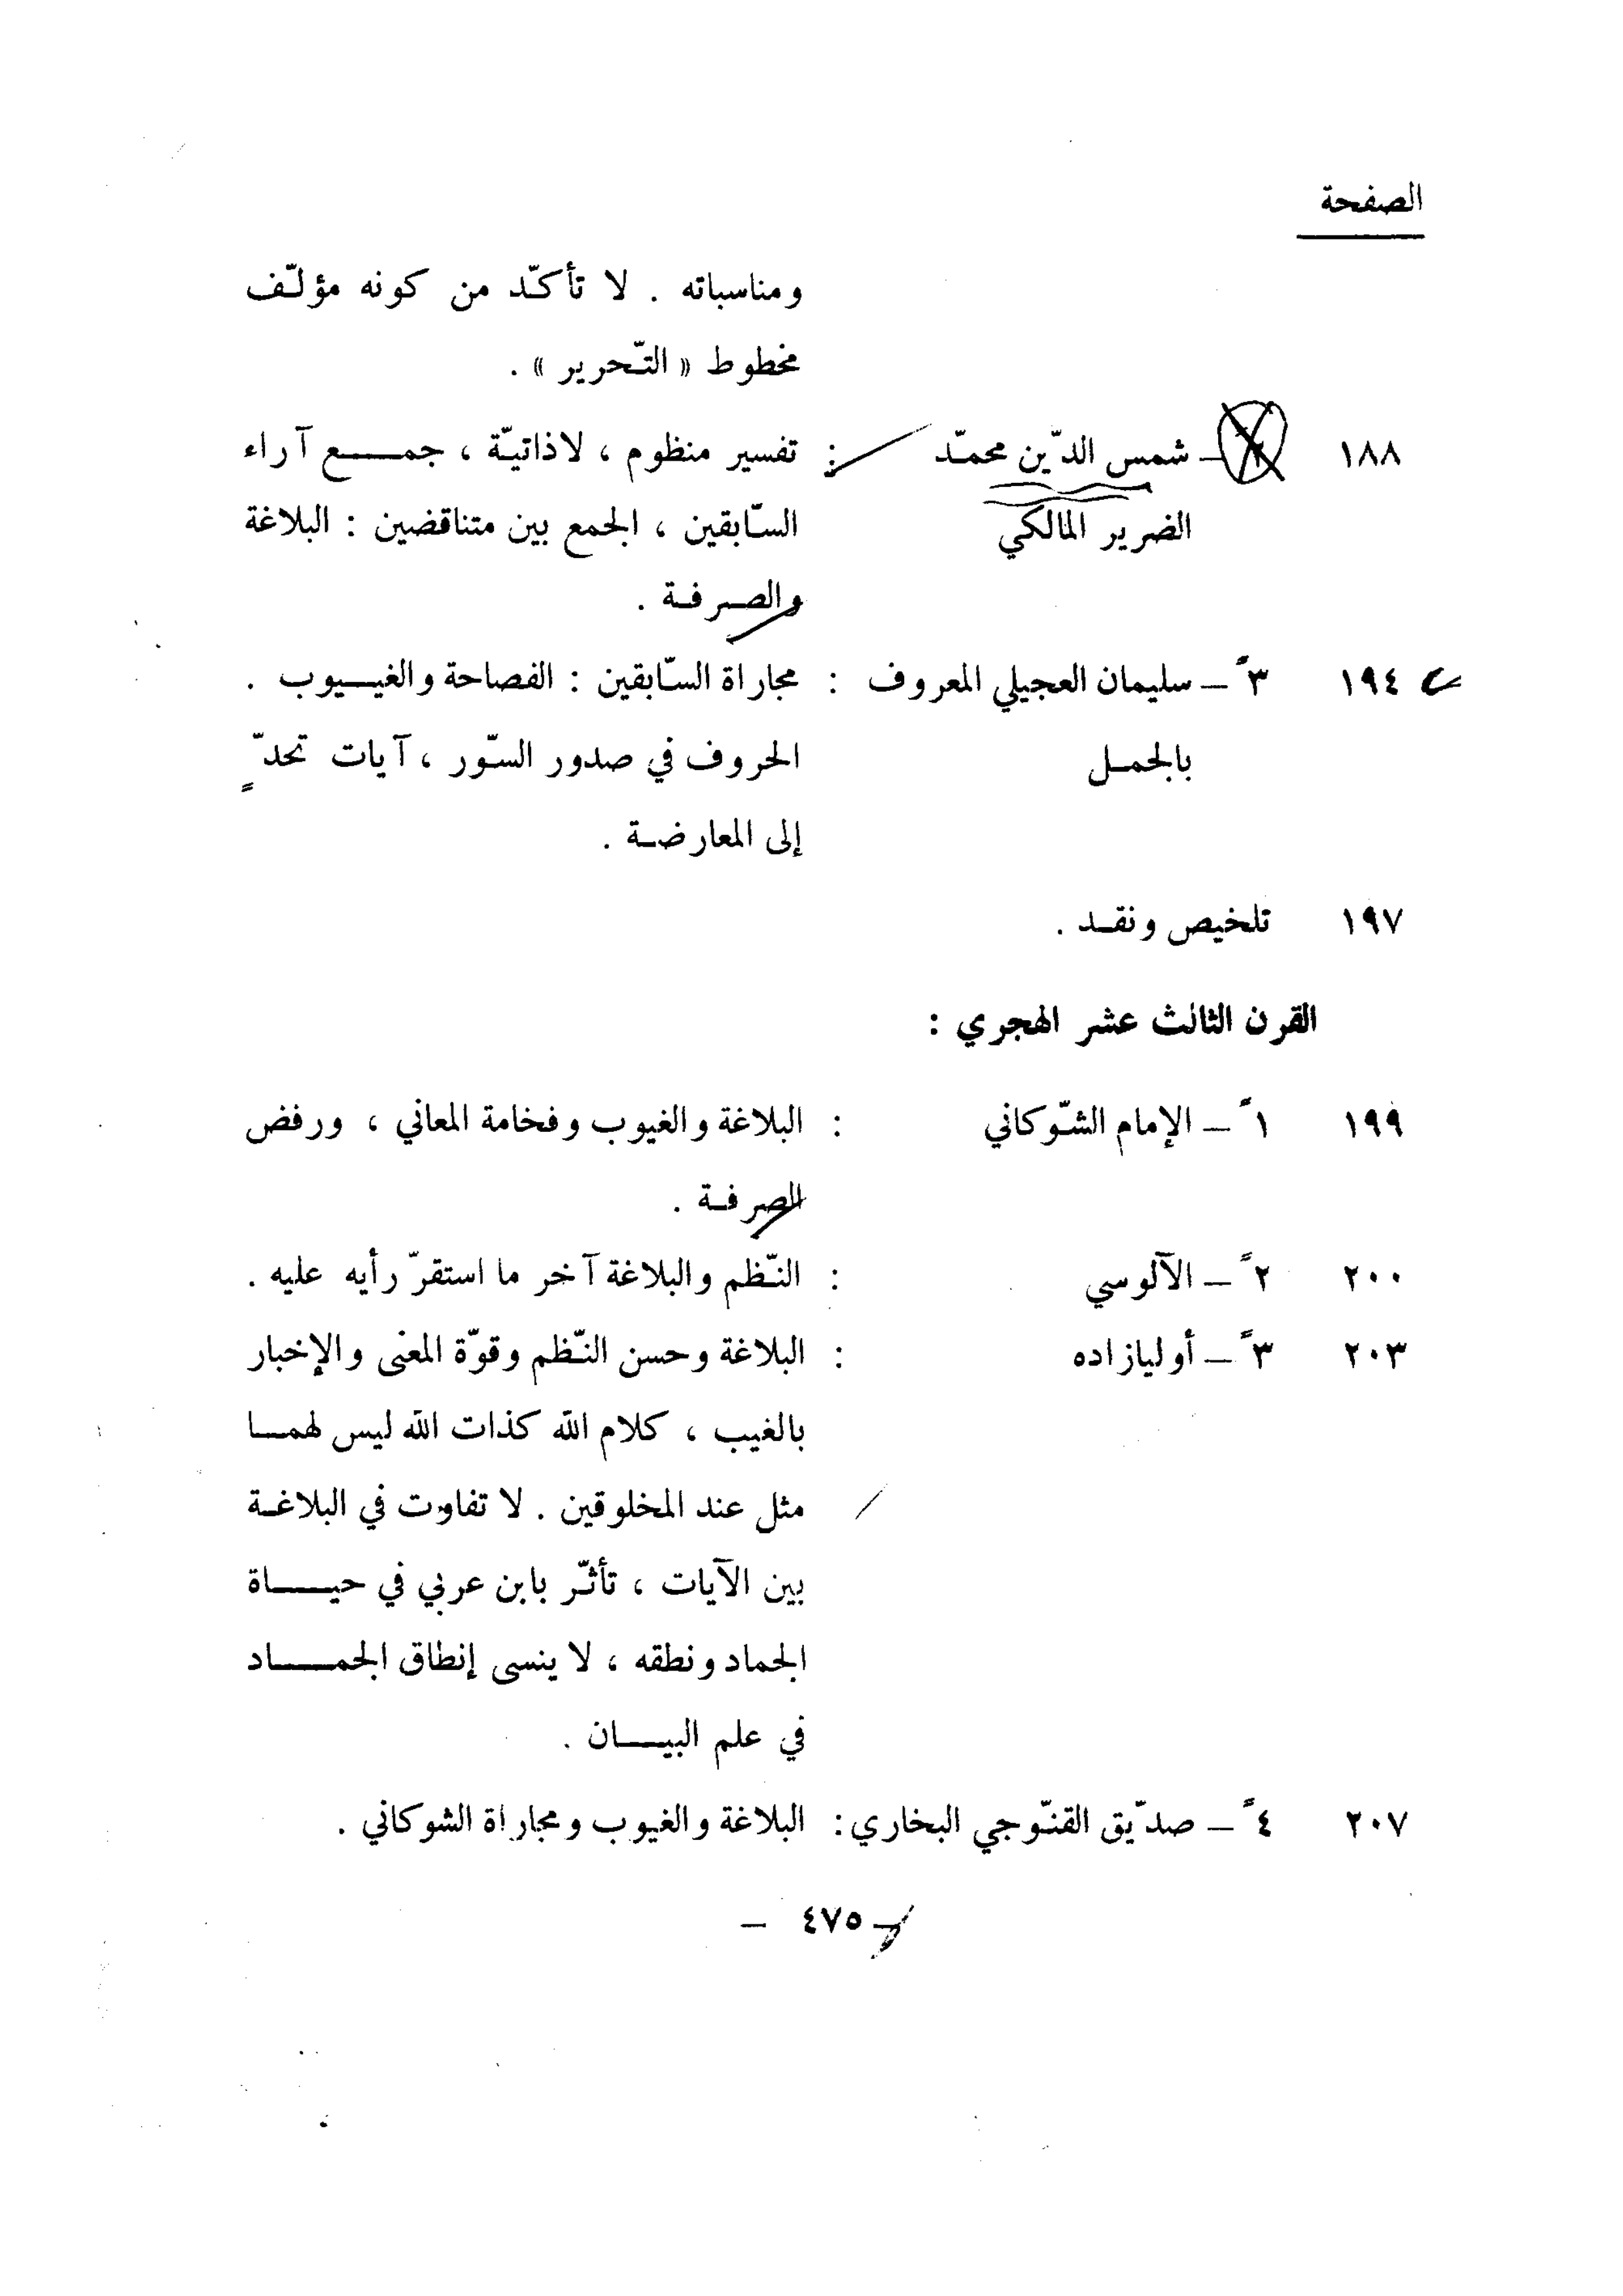 الصفحة
ومناسباته . لا تأكّد من كونه مؤلّف
مخطوط « التّحرير » .
١٨٨ – شمس الدّين محمّد : تفسير منظوم ، لاذاتيّة ، جمع آراء
الضرير المالكي السّابقين ، الجمع بين متناقضين : البلاغة
والصرفة .
١٩٤ ٣ً – سليمان العجيلي المعروف : مجاراة السّابقين : الفصاحة والغيوب .
بالجمل الحروف في صدور السّور ، آيات تحدّ ٍ
إلى المعارضة .
١٩٧ تلخيص ونقد .
القرن الثالث عشر الهجري :
١٩٩ ١ً – الإمام الشّوكاني : البلاغة والغيوب وفخامة المعاني ، ورفض
الصرفة .
٢٠٠ ٢ً – الآلوسي : النّظم والبلاغة آخر ما استقرّ رأيه عليه .
٢٠٣ ٣ً – أوليازاده : البلاغة وحسن النّظم وقوّة المعنى والإخبار
بالغيب ، كلام الله كذات الله ليس لهما
مثل عند المخلوقين . لا تفاوت في البلاغة
بين الآيات ، تأثّر بابن عربي في حياة
الجماد ونطقه ، لا ينسى إنطاق الجماد
في علم البيان .
٢٠٧ ٤ً – صدّيق القنّوجي البخاري : البلاغة والغيوب ومجاراة الشوكاني .
– ٤٧٥ –